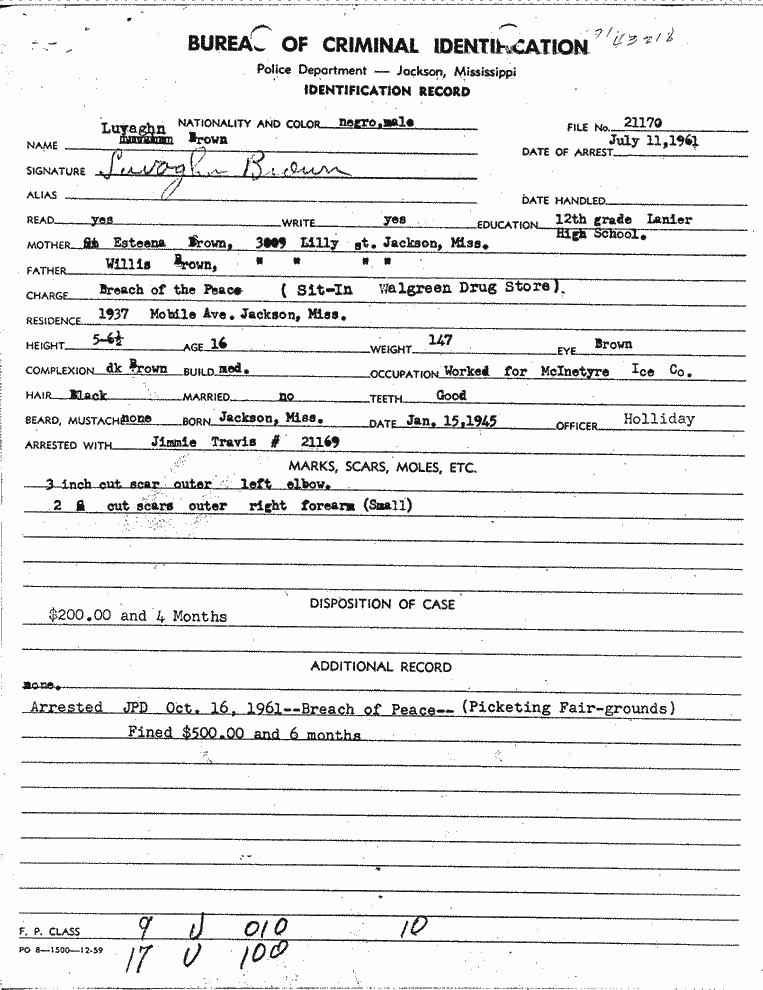 BUREAU OF CRIMINAL IDENTIFICATION
Police Department — Jackson, Mississippi
IDENTIFICATION RECORD
NATIONALITY AND COLOR negro,male FILE No. 21170
NAME Luvaghn Brown DATE OF ARREST July 11,1961
SIGNATURE Luvaghn Brown
ALIAS DATE HANDLED
READ yes WRITE yes EDUCATION 12th grade Lanier High School.
MOTHER Esteena Brown, 3009 Lilly st. Jackson, Miss.
FATHER Willis Brown, " " " "
CHARGE Breach of the Peace ( Sit-In Walgreen Drug Store).
RESIDENCE 1937 Mobile Ave. Jackson, Miss.
HEIGHT 5-6½ AGE 16 WEIGHT 147 EYE Brown
COMPLEXION dk Brown BUILD med. OCCUPATION Worked for McInetyre Ice Co.
HAIR Black MARRIED no TEETH Good
BEARD, MUSTACH none BORN Jackson, Miss. DATE Jan. 15,1945 OFFICER Holliday
ARRESTED WITH Jimmie Travis # 21169
MARKS, SCARS, MOLES, ETC.
3 inch cut scar outer left elbow.
2 cut scars outer right forearm (Small)
DISPOSITION OF CASE
$200.00 and 4 Months
ADDITIONAL RECORD
none.
Arrested JPD Oct. 16, 1961--Breach of Peace-- (Picketing Fair-grounds)
Fined $500.00 and 6 months
F. P. CLASS 9 U 010 10
PO 8—1500—12-59 17 U 100